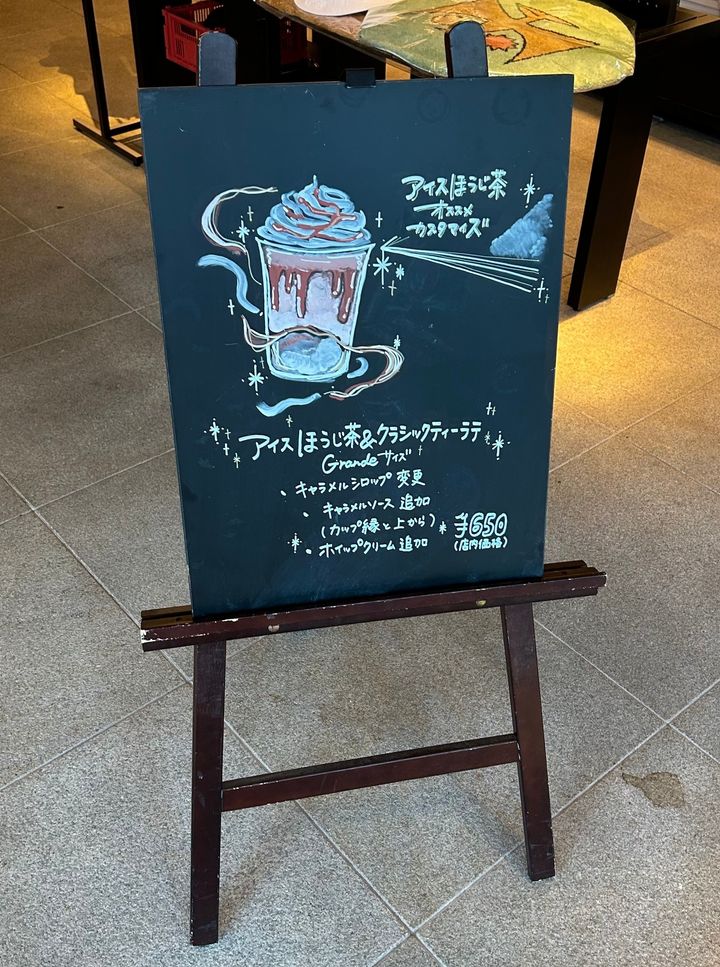 アイスほうじ茶
オススメ
カスタマイズ
アイスほうじ茶&クラシックティーラテ
Grandeサイズ
・キャラメルシロップ 変更
・キャラメルソース 追加
(カップ縁と上から)
・ホイップクリーム追加
¥650
(店内価格)